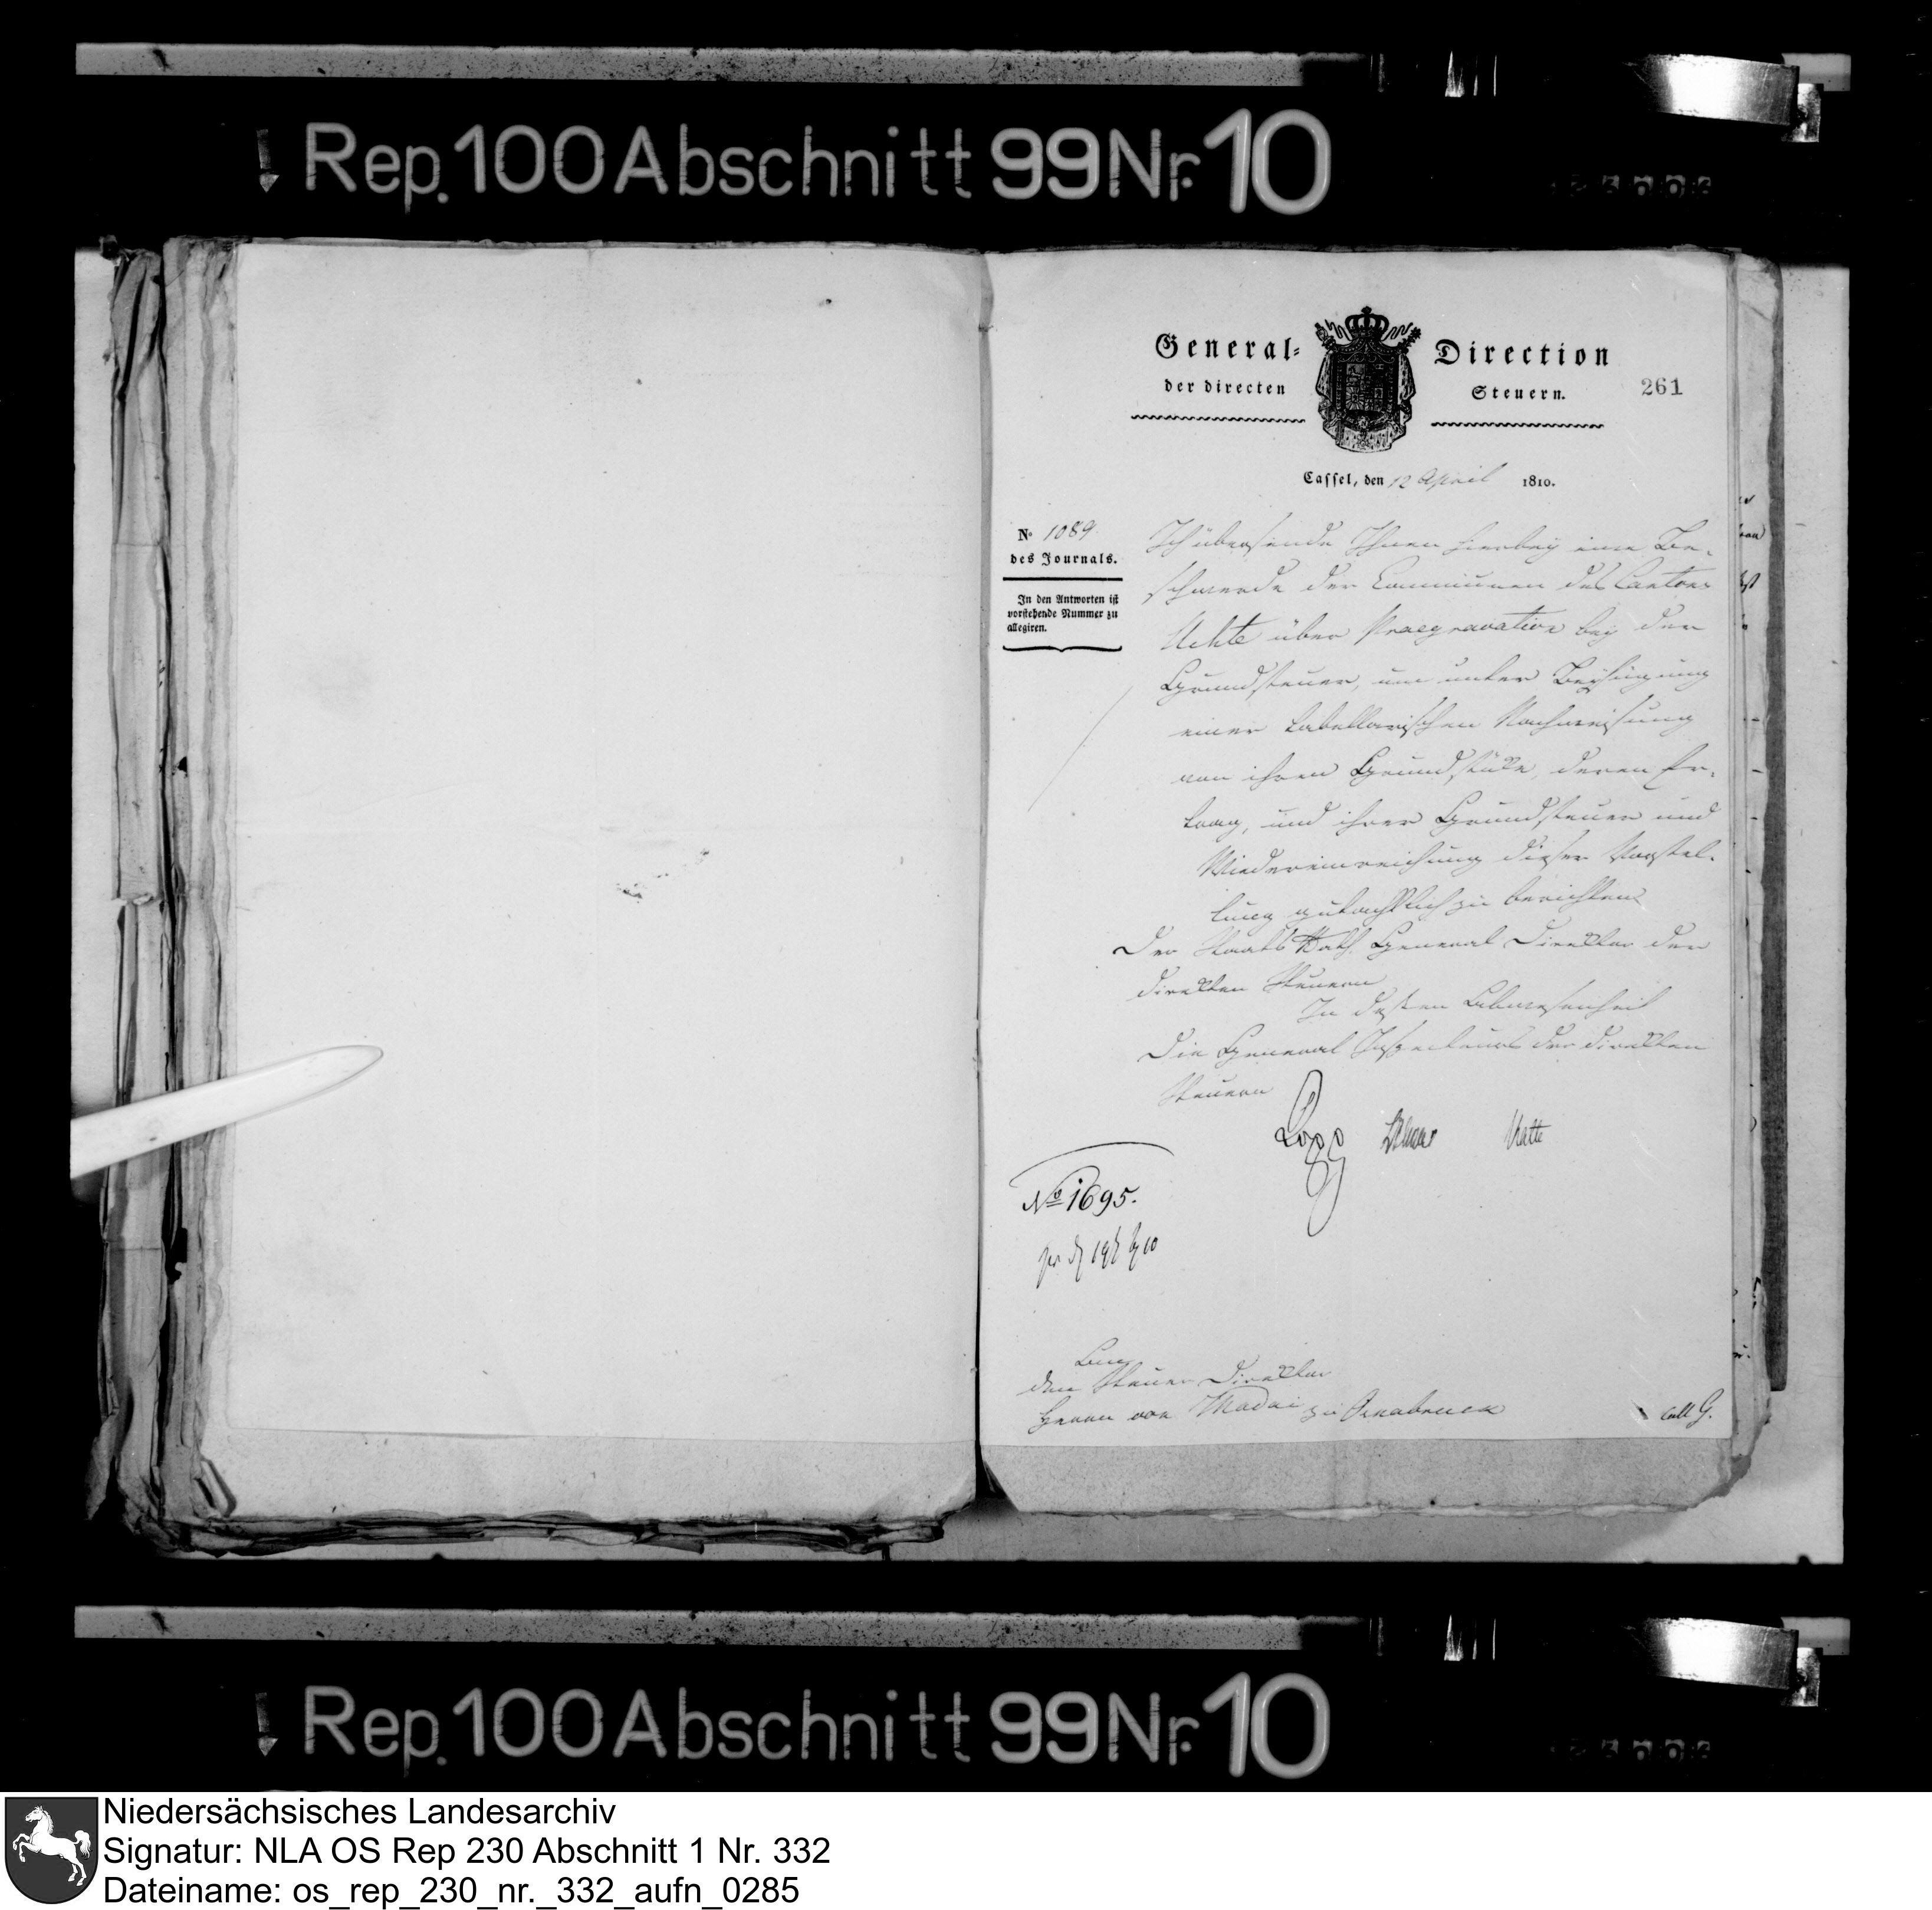 Rep. 100 Abschnitt 99 Nr. 10
General- Direction
der directen Steuern.
261
Cassel, den 12 April 1810.
No 1089.
des Journals.
In den Antworten ist
vorstehende Nummer zu
allegiren.
Ich übersende Ihnen hierbey eine Be-
schwerde der Communen des Cantons
Uchte über Praegravation bey der
Grundsteuer, um unter Beyfügung
einer tabellarischen Nachweisung
von ihren Grundstücke, deren Er-
trag, und ihrer Grundsteuer und
Wiedereinreichung dieser Vorstel-
lung gutachtlich zu berichten
Der Staats Rath General Direktor der
direkten Steuern
In dessen Abwesenheit
Die General Inspecteurs der direkten
Steuern
Malte
No 1695.
An
den Steuer Direktor
Herrn von Madai zu Osnabruck
Coll G.
Rep. 100 Abschnitt 99 Nr. 10
Niedersächsisches Landesarchiv
Signatur: NLA OS Rep 230 Abschnitt 1 Nr. 332
Dateiname: os_rep_230_nr._332_aufn_0285